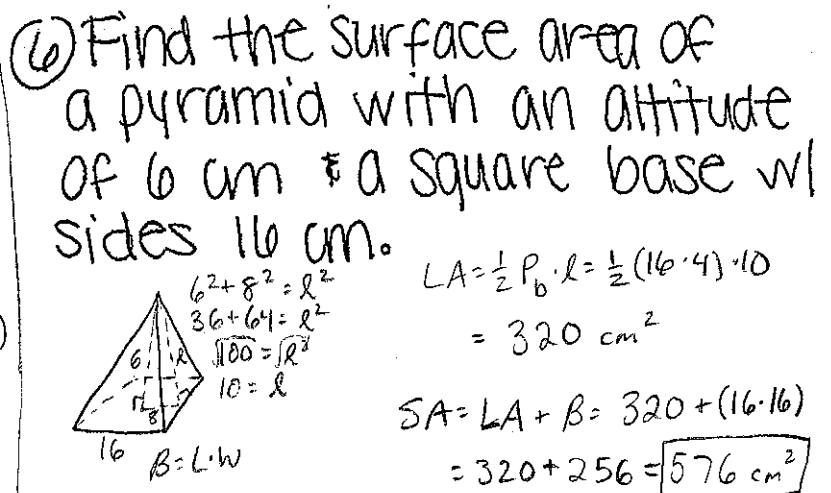 ⑥ Find the surface area of
a pyramid with an altitude
of 6 cm & a square base w/
sides 16 cm.
6² + 8² = l²
36 + 64 = l²
√100 = √l²
10 = l
6
l
8
16
B = L·W
LA = ½ P_b · l = ½ (16·4)·10
= 320 cm²
SA = LA + B = 320 + (16·16)
= 320 + 256 = 576 cm²